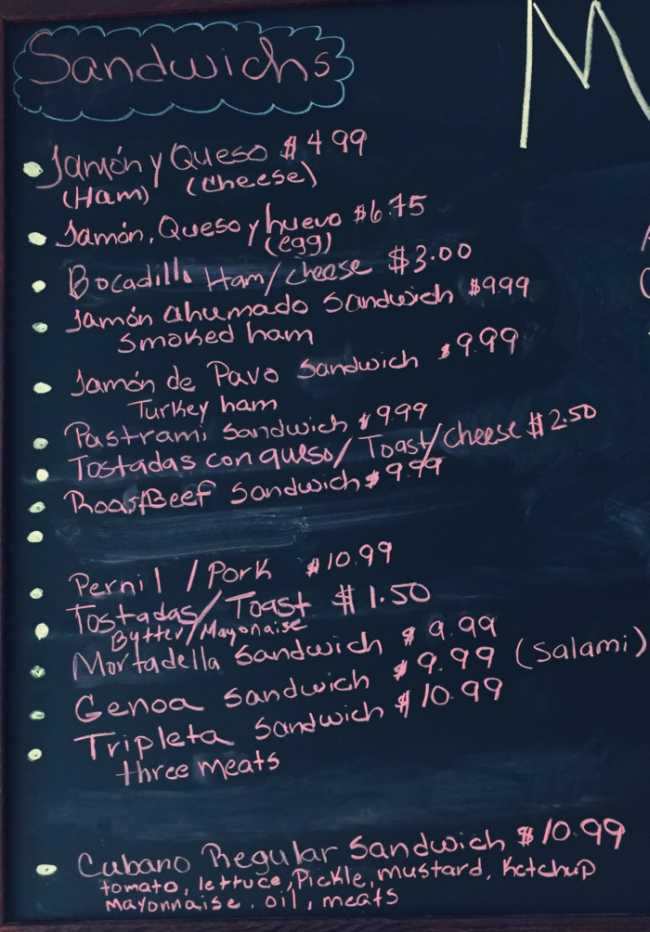 Sandwichs
M
Jamón y Queso $4.99
(Ham) (cheese)
Jamón, Queso y huevo $6.75
(egg)
Bocadillo Ham/cheese $3.00
Jamón ahumado Sandwich $999
Smoked ham
Jamón de Pavo Sandwich $9.99
Turkey ham
Pastrami Sandwich $999
Tostadas con queso/Toast/cheese $2.50
RoastBeef Sandwich $9.99
Pernil/Pork $10.99
Tostadas/Toast $1.50
Butter/Mayonaise
Mortadella Sandwich $9.99
Genoa Sandwich $9.99 (Salami)
Tripleta Sandwich $10.99
three meats
Cubano Regular Sandwich $10.99
tomato, lettuce, Pickle, mustard, Ketchup
Mayonnaise, oil, meats